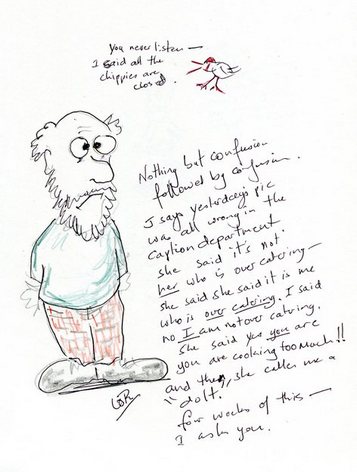 You never listen —
I said all the
chippies are
closed.
Nothing but confusion
followed by confusion.
I says yesterdays pic
was all wrong in the
caption department
she said it's not
her who is over catering —
she said she said it is me
who is over catering. I said
no I am not over catering.
she said yes you are
you are cooking too much!!
and then, she calls me a
"dolt".
four weeks of this —
I ask you.